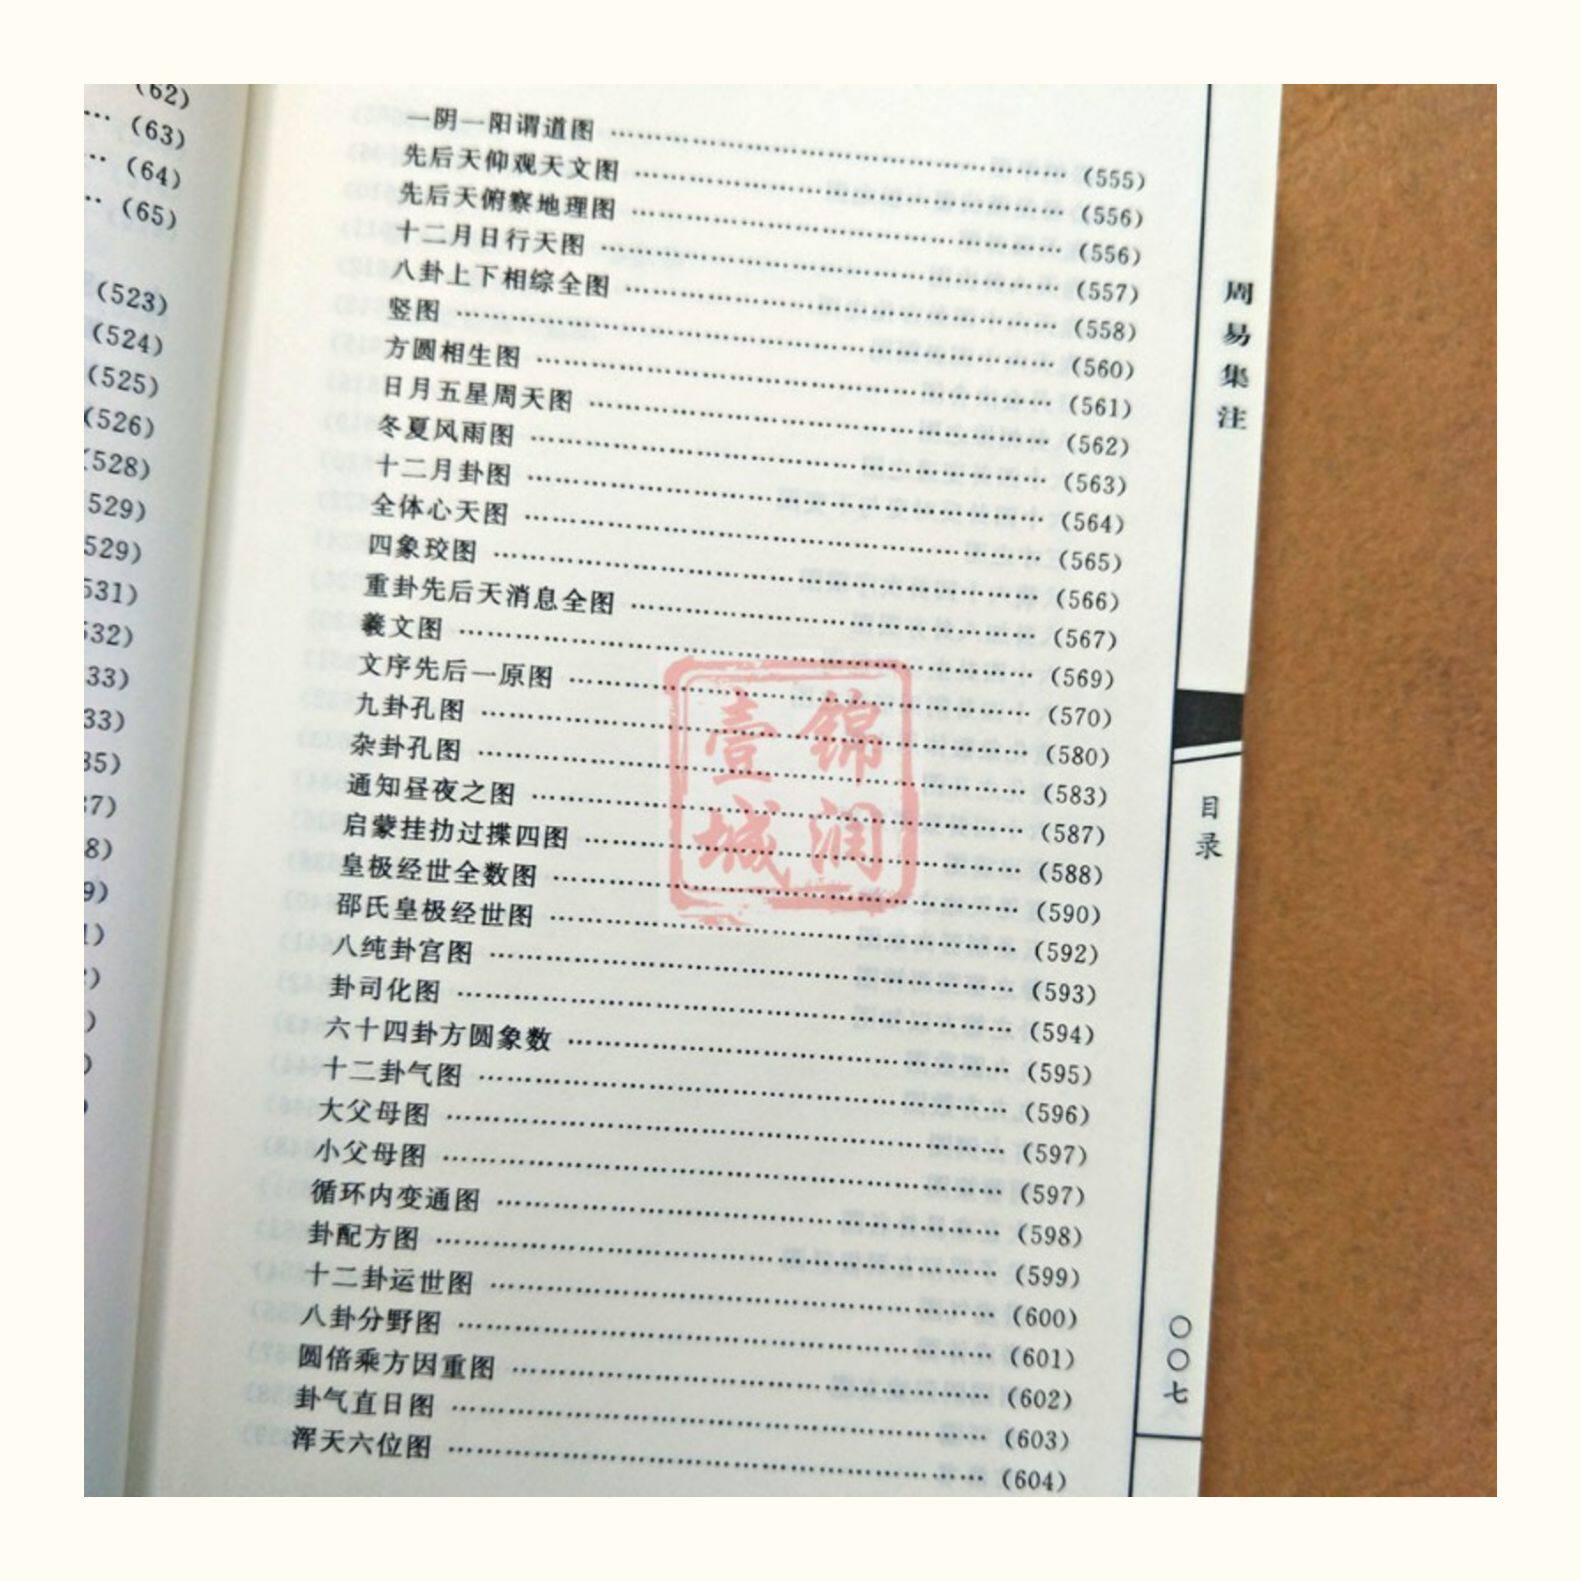 (62)
… (63)
… (64)
… (65)
(523)
(524)
(525)
(526)
(528)
529)
529)
531)
532)
33)
33)
35)
一阴一阳谓道图 …… (555)
先后天仰观天文图 …… (556)
先后天俯察地理图 …… (556)
十二月日行天图 …… (557)
八卦上下相综全图 …… (558)
竖图 …… (560)
方圆相生图 …… (561)
日月五星周天图 …… (562)
冬夏风雨图 …… (563)
十二月卦图 …… (564)
全体心天图 …… (565)
四象珓图 …… (566)
重卦先后天消息全图 …… (567)
羲文图 …… (569)
文序先后一原图 …… (570)
九卦孔图 …… (580)
杂卦孔图 …… (583)
通知昼夜之图 …… (587)
启蒙挂扐过揲四图 …… (588)
皇极经世全数图 …… (590)
邵氏皇极经世图 …… (592)
八纯卦宫图 …… (593)
卦司化图 …… (594)
六十四卦方圆象数 …… (595)
十二卦气图 …… (596)
大父母图 …… (597)
小父母图 …… (597)
循环内变通图 …… (598)
卦配方图 …… (599)
十二卦运世图 …… (600)
八卦分野图 …… (601)
圆倍乘方因重图 …… (602)
卦气直日图 …… (603)
浑天六位图 …… (604)
周易集注
目录
〇〇七
锦润
壹城